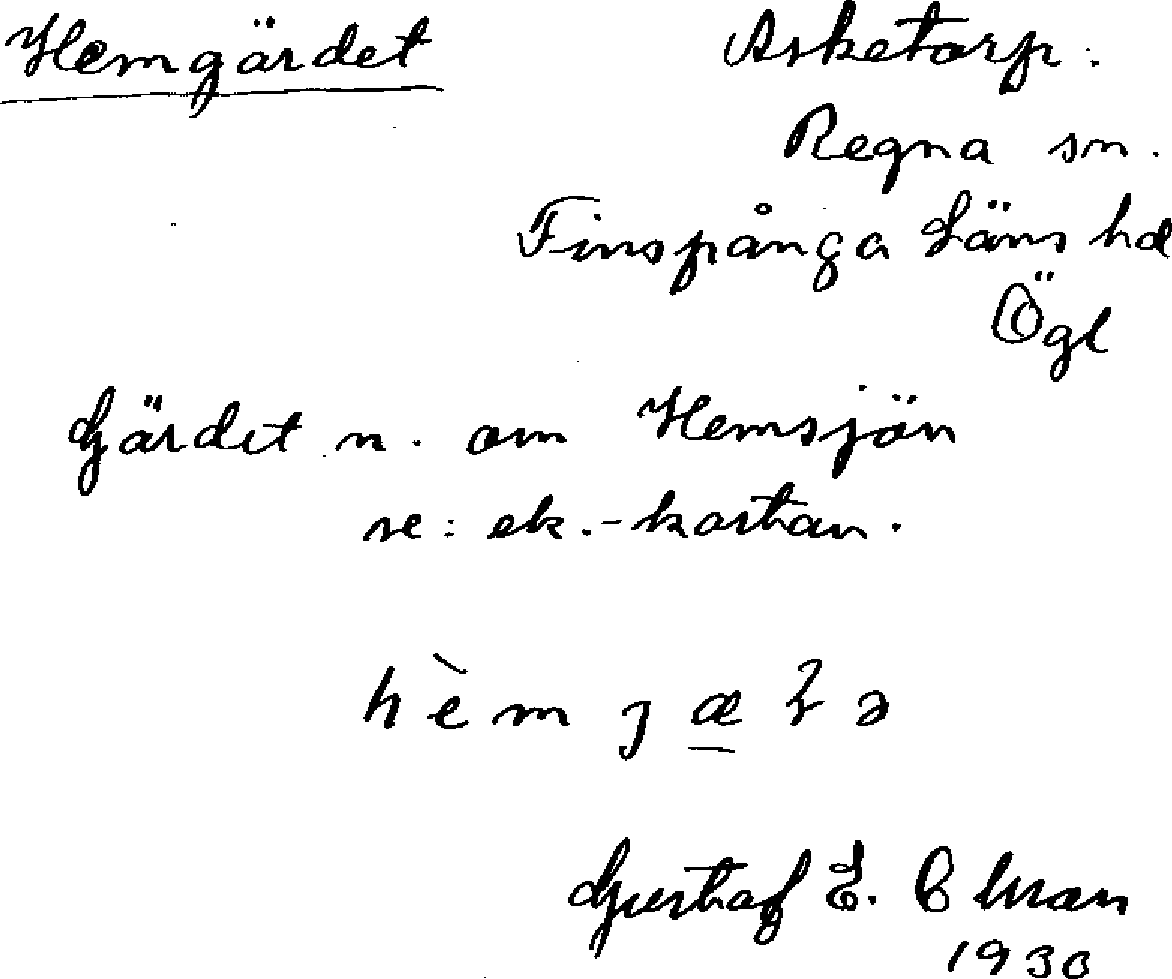 Hemgärdet
Asketorp.
Regna sn.
Finspånga Läns hd
Ögl
Gärdet n. om Hemsjön
se: ek.-kartan.
Gustaf E.
1930